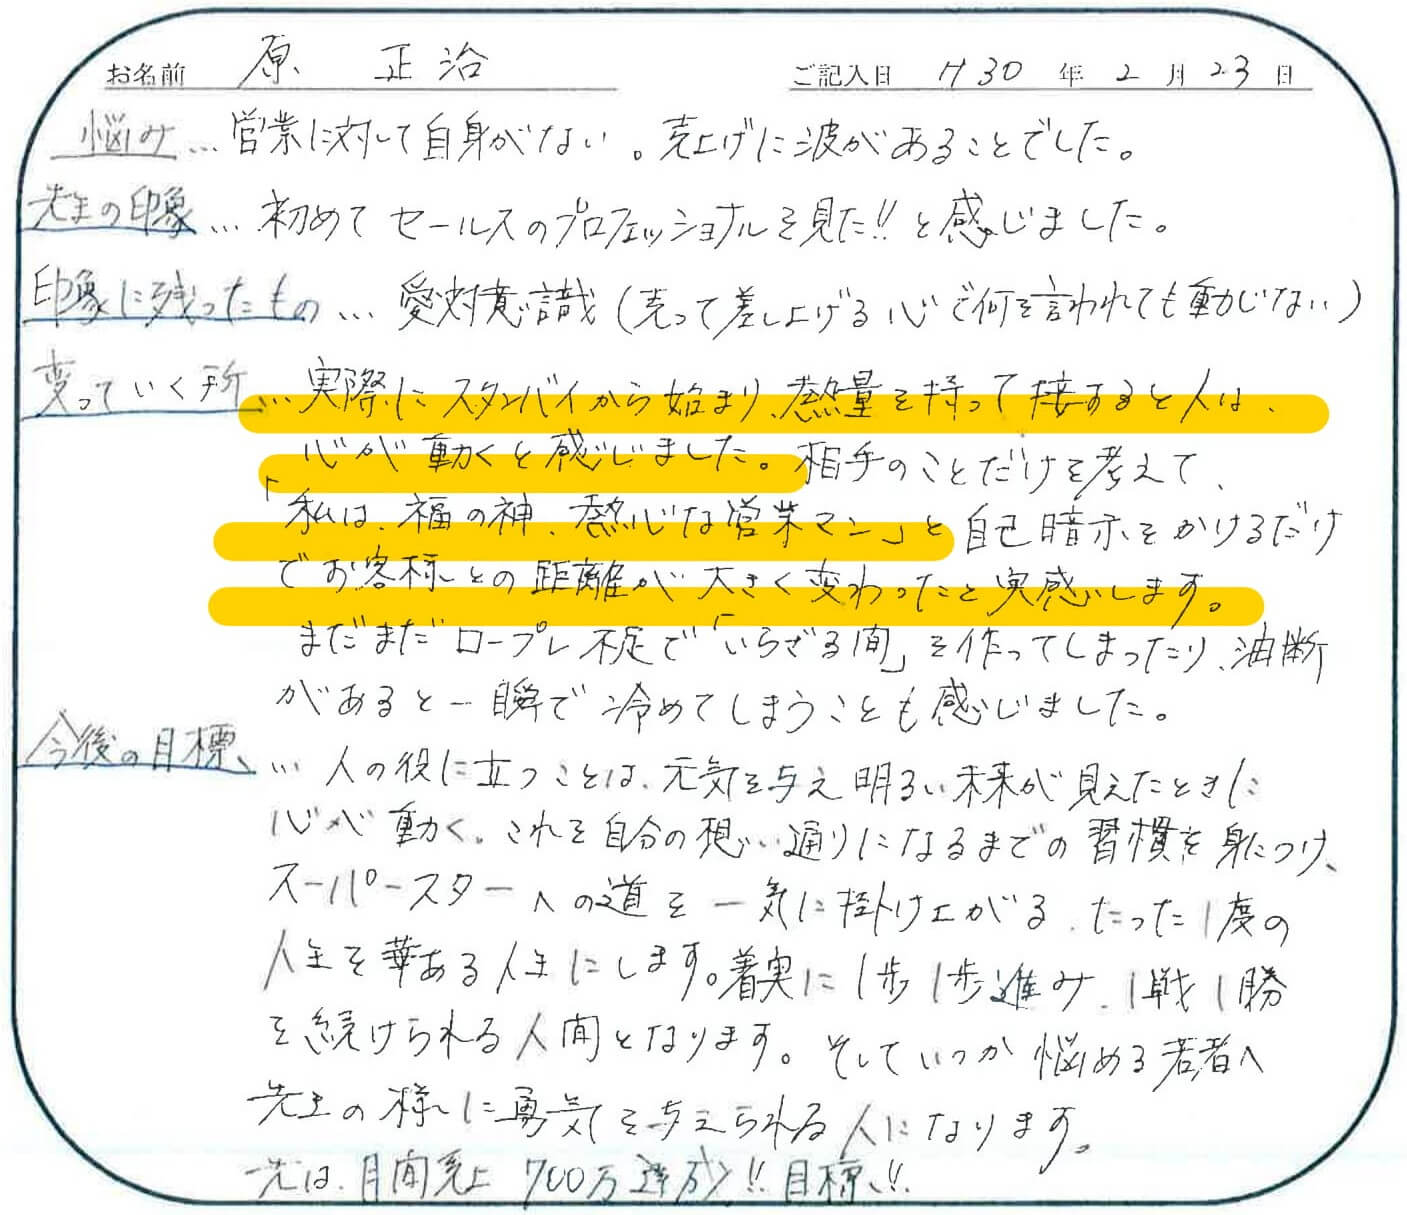 お名前 原 正治 ご記入日 H30 年 2 月 23 日
悩み … 営業に対して自身がない。売上げに波があることでした。
先生の印象 … 初めてセールスのプロフェッショナルを見た!!と感じました。
印象に残ったもの … 愛対意識(売って差し上げる心で何を言われても動じない)
変っていく所 … 実際にスタンバイから始まり、熱量を持って接すると人は、
心が動くと感じました。相手のことだけを考えて、
「私は、福の神、熱心な営業マン」と自己暗示をかけるだけ
でお客様との距離が大きく変わったと実感します。
まだまだロープレ不足で「いらざる間」を作ってしまったり、油断
があると一瞬で冷めてしまうことも感じました。
今後の目標、 … 人の役に立つことは、元気を与え明るい未来が見えたときに
心が動く。これを自分の想い通りになるまでの習慣を身につけ、
スーパースターへの道を一気に掛け上がる、たった1度の
人生を華ある人生にします。着実に1歩1歩進み、1戦1勝
を続けられる人間となります。そしていつか悩める若者へ
先生の様に勇気を与えられる人になります。
先は、月間売上 700万達成!!目標、!!